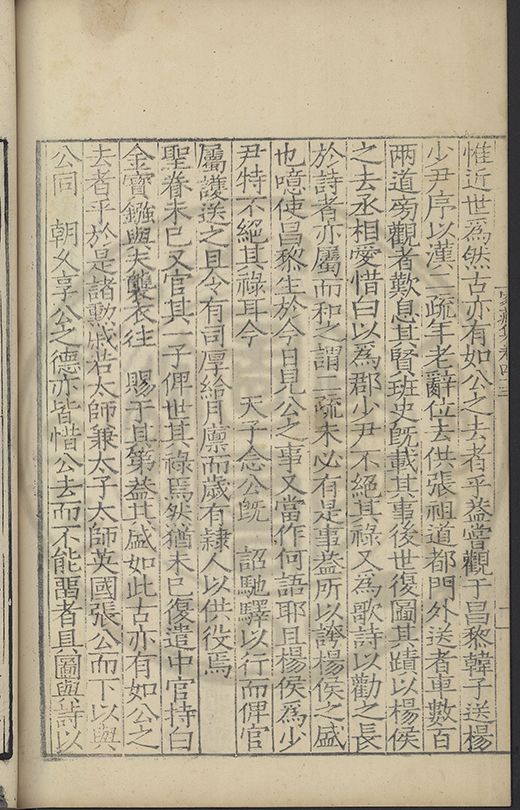 惟近世爲然古亦有如公之去者乎葢嘗觀于昌黎韓子送楊
少尹序以漢二疏年老辭位去供張祖道都門外送者車數百
两道旁觀者歎息其賢班史旣載其事後世復圖其蹟以楊侯
之去丞相愛惜白以爲郡少尹不絕其祿又爲歌詩以勸之長
於詩者亦屬而和之謂二疏未必有是事葢所以誇楊侯之盛
也噫使昌黎生於今日見公之事又當作何語耶且楊侯爲少
尹特不絕其祿耳今 天子念公旣 詔馳驛以行而俾官
屬護送之且令有司厚給月廪而歲有隷人以供役焉
聖眷未已又官其一子俾世其祿焉然猶未已復遣中官持白
金寶鏹與夫襲衣往 賜于其第葢其盛如此古亦有如公之
去者乎於是諸勳戚若太師兼太子太師英國張公而下以與
公同 朝久享公之德亦皆惜公去而不能留者具圖與詩以